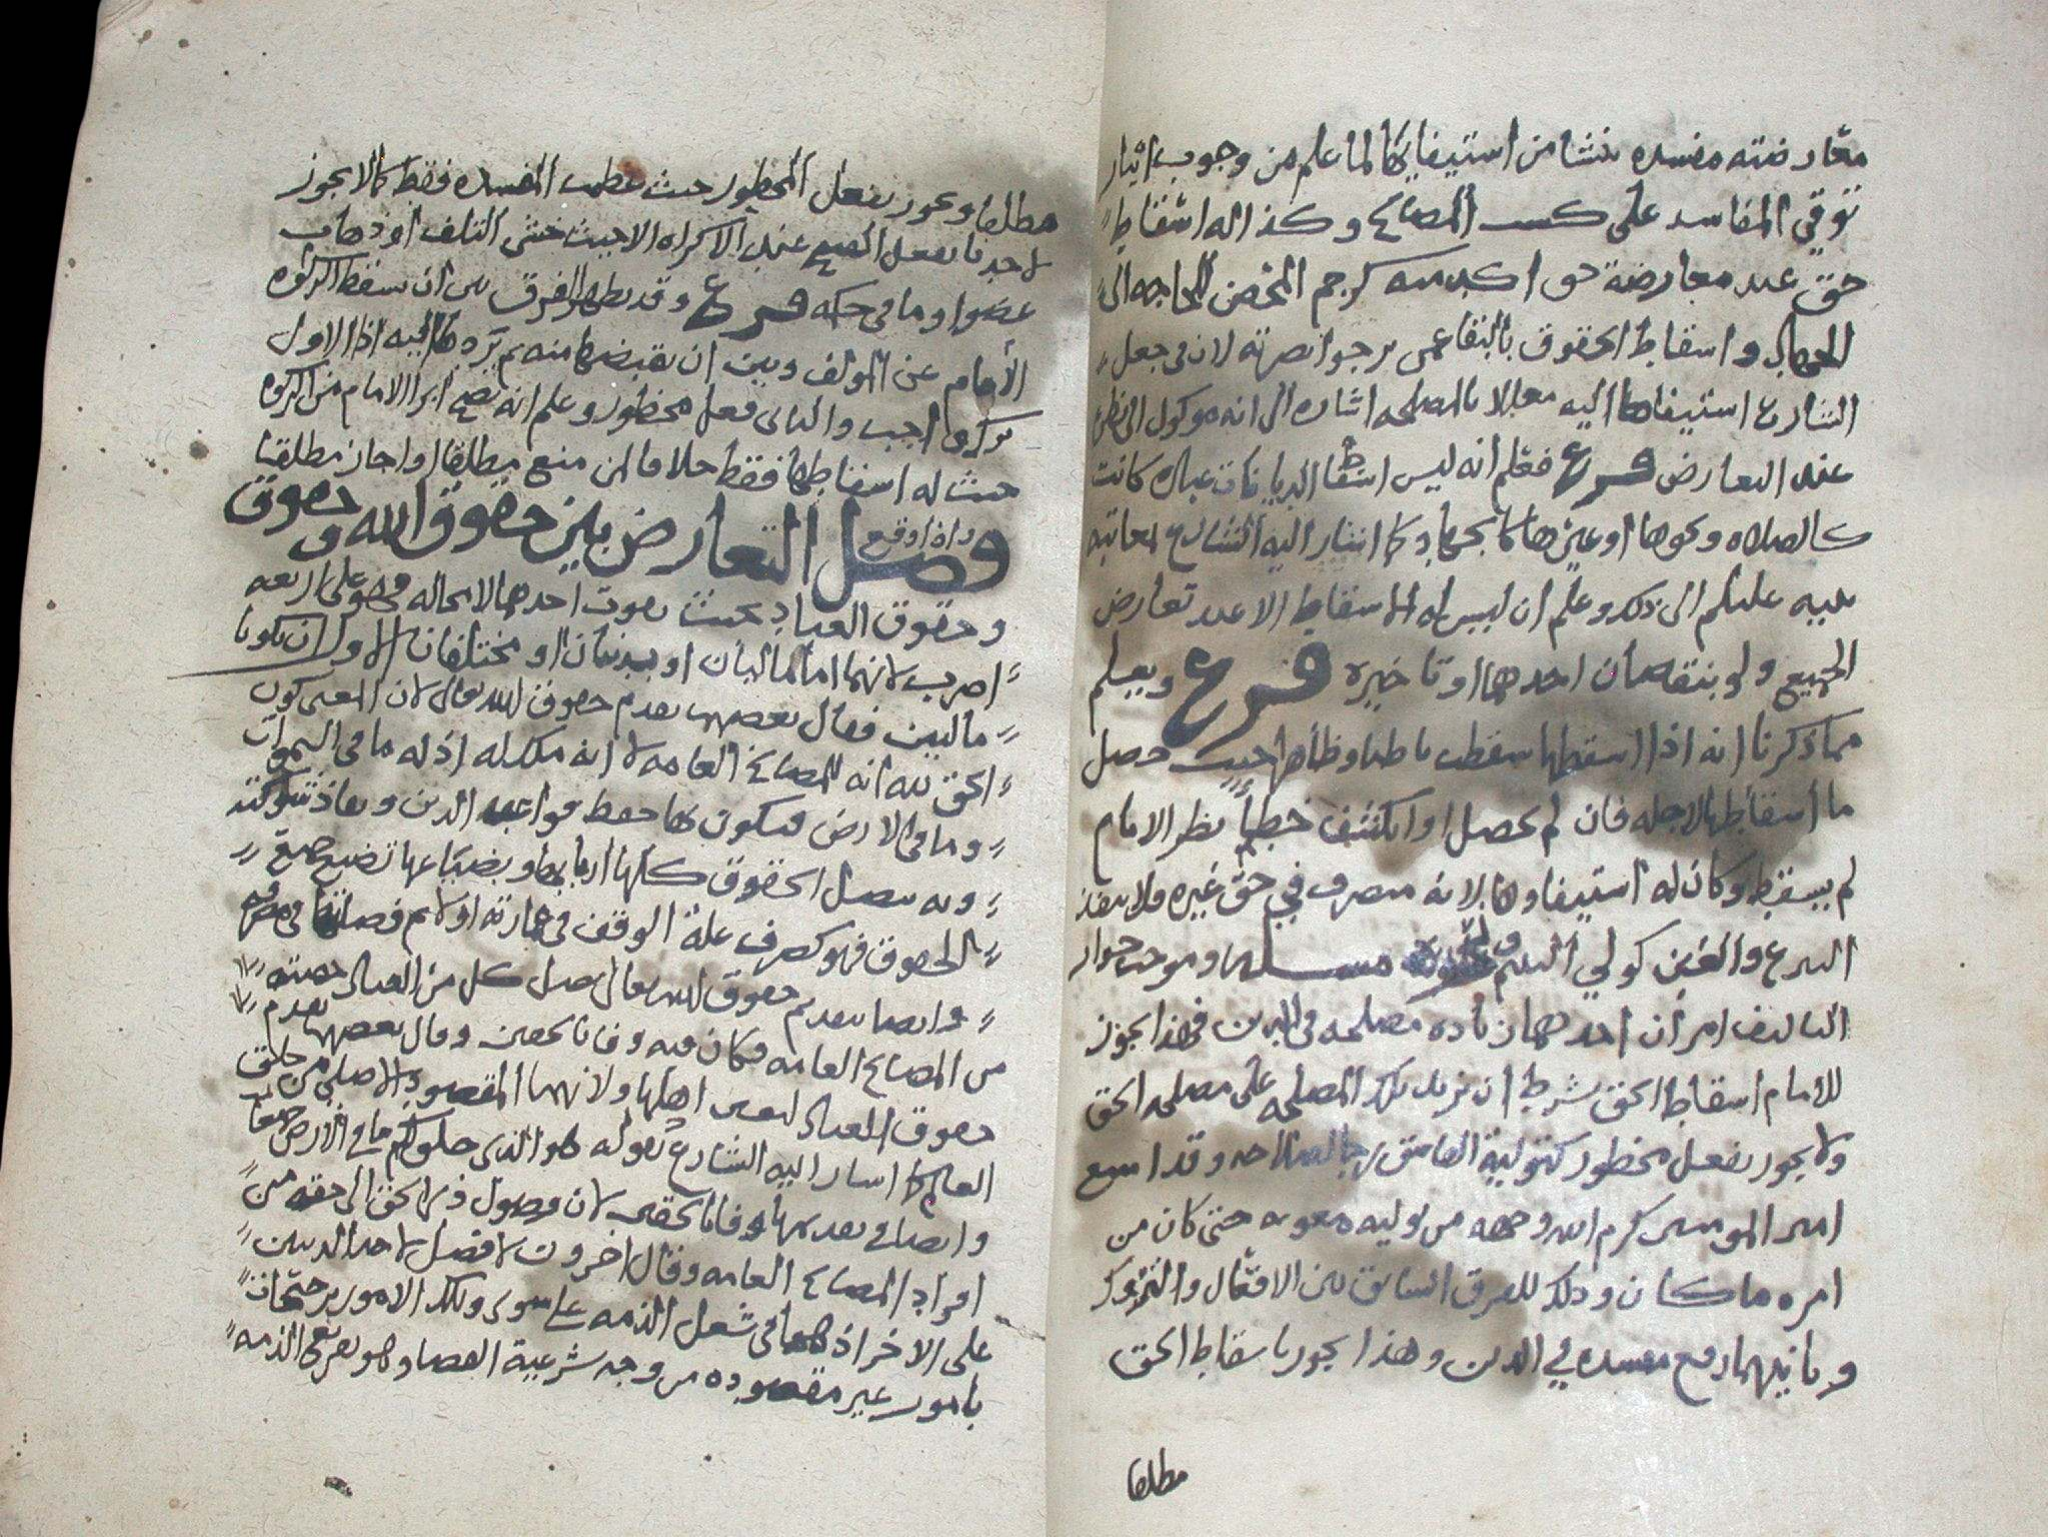 معارضته مفسده تنشا من استيفايها كما لما علم من وجوب ايثار
توقي المفاسد على كسب المصالح وكذا له اسقاط
حق عند معارضة حق اكد منه كرجم المحصن المحتاج اليه
للجهاد واسقاط الحقوق بالتقاعمى يرجو انصرته لان في جعل
الشارع استيفاها اليه معللا بالمصلحه اشاره الى انه موكول الى نظره
عند التعارض فرع فعلم انه ليس اسقاط الديانات عباده كانت
كالصلاه ونحوها او غيرها كالجهاد كما اشار اليه الشارع لمعاتبة
نبيه عليكم الى ذلك وعلم ان ليس له الاسقاط الا عند تعارض
الجميع ولو بنقصان احدهما او تاخيره فرع ويعلم
مما ذكرنا انه اذا اسقطها سقطت باطنا وظاهرا حيث حصل
ما اسقاطها لاجله فان لم يحصل او انكشف خطأ نظر الامام
لم يسقط وكان له استيفاوها لانه متصرف في حق غيره ولا ينفذ
التبرع والغبن كولي اليتيم مسله وموجب جواز
التاليف امران احدهما زياده مصلحه في الدين فهذا يجوز
للامام اسقاط الحق بشرط ان تزيد تلك المصلحه على مصلحه الحق
ولا يجوز بفعل محظور كتولية الفاسق رجا لصلاحه وقد امتنع
امير المومنين كرم الله وجهه من توليه معويه حتى كان من
امره ما كان وذلك للفرق السابق بين الافعال والتروك
وثانيهما دفع مفسده في الدين وهذا يجوز باسقاط الحق
مطلقا
مطلقا ويجوز بفعل المحظور حيث عظمت المفسده فقط كما لا يجوز
لاحدنا بفعل القبيح عند الاكراه الا حيث خشي التلف او ذهاب
عضو او ما في حكمه فرع وقد يظهر الفرق بين ان يسقط الزكوه
الامام عن المولف وبين ان يقبضها منه ثم يردها اليه اذ الاول
ترك واجب والثاني فعل محظور وعلم انه يصح ابرا الامام من الزكوه
حيث له اسقاطها فقط خلافا لمن منع مطلقا او اجاز مطلقا
فصل واذا وقع التعارض بين حقوق الله وحقوق
وحقوق العباد بحيث يفوت احدهما لا محاله فهو على اربعه
اضرب لانهما اما ماليان او بدنيان او مختلفان الاول ان يكونا
ماليين فقال بعضهم يقدم حقوق الله تعالى لان المعنى كون
الحق لله انه للمصالح العامه لا انه ملك له اذ له ما في السموات
وما في الارض فيكون بها حفظ قواعد الدين ونفاذ شوكته
وبه يصل الحقوق كلها اربابها وبضياعها تضيع جميع
الحقوق فهو كصرف غلة الوقف في عمارته اولا ثم فضلتها في مصرفه
وايضا بتقديم حقوق الله تعالى يصل كل من العباد حصته
من المصالح العامه فكان فيه وفا بالحقين وقال بعضهم يقدم
حقوق العباد لتعين اهلها ولانهما المقصود الاصلي من خلق
العالم كما اشار اليه الشارع بقوله هو الذي خلق لكم ما في الارض جميعا
وايضا في تقديمها وفا بالحقين لان وصول ذي الحق الى حقه من
افراد المصالح العامه وقال اخرون لا فضل لاحد الدينين
على الاخر اذ هما في شغل الذمه على سوى وتلك الامور ترجيحات
بامور غير مقصوده من وجه شرعية القضا وهو تفريغ الذمه